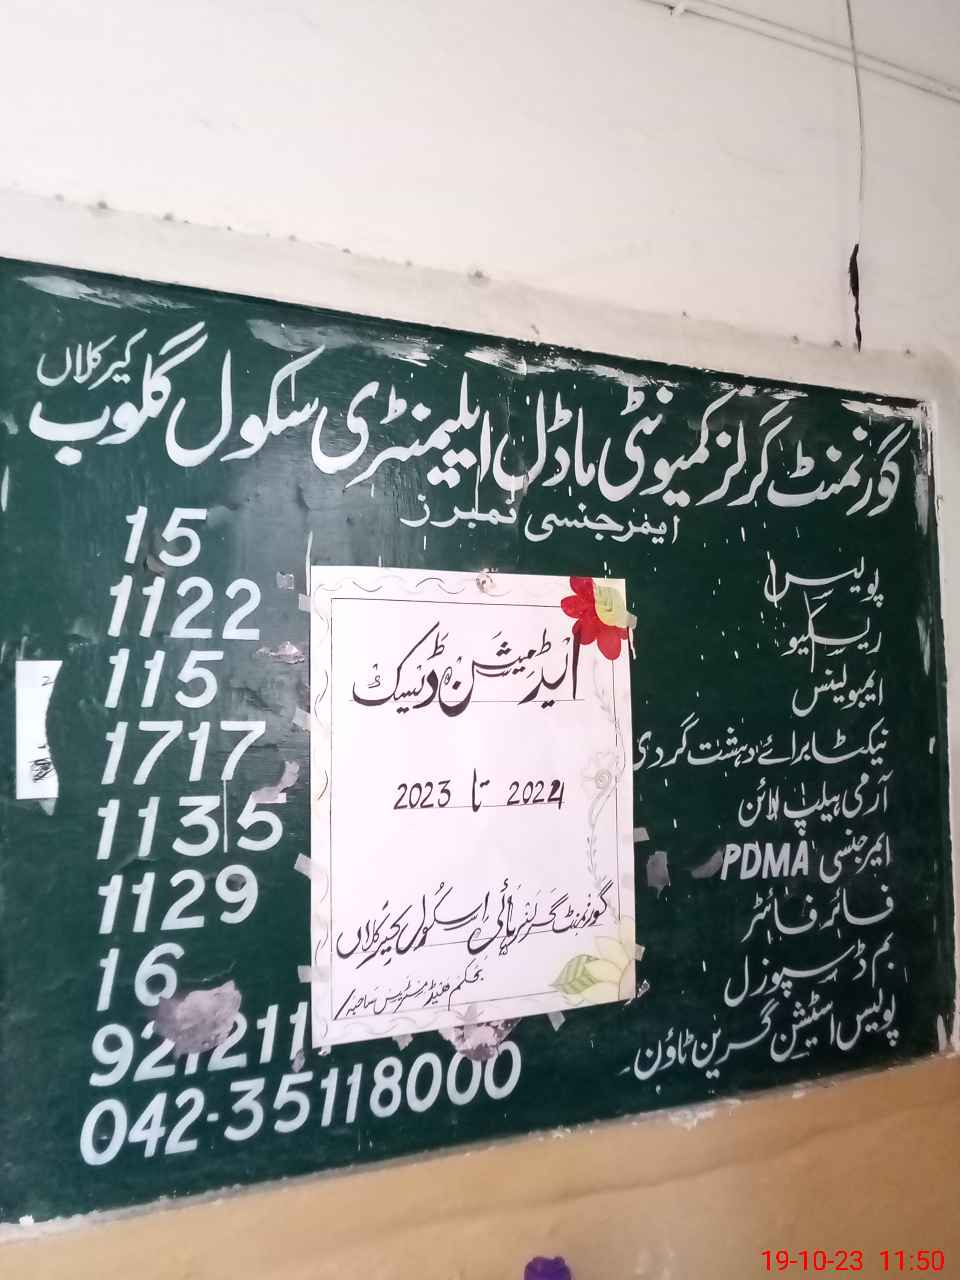 گورنمنٹ گرلز کمیونٹی ماڈل ایلیمنٹری سکول گلوب کیر کلاں
ایمرجنسی نمبرز
پولیس 15
ریسکیو 1122
ایمبولینس 115
نیکٹا برائے دہشت گردی 1717
آرمی ہیلپ لائن 1135
ایمرجنسی PDMA 1129
فائر فائٹر 16
بم ڈسپوزل
پولیس اسٹیشن گرین ٹاؤن 042-35118000
ایڈمیشن ڈیسک
2023 تا 2024
گورنمنٹ گرلز ہائی اسکول کیر کلاں
بحکم ھیڈ مسٹریس صاحبہ
19-10-23 11:50